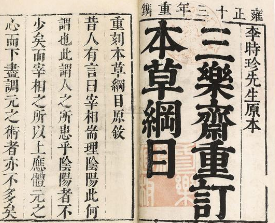 雍正十三年重鐫
李時珍先生原本
三樂齋重訂
本草綱目
重刻本草綱目原敘
昔人有言曰宰相當理陰陽此何
謂也此謂人之所患乎陰陽者不
少矣而宰相之所以上應體元之
心而下盡調元之術者亦不多矣